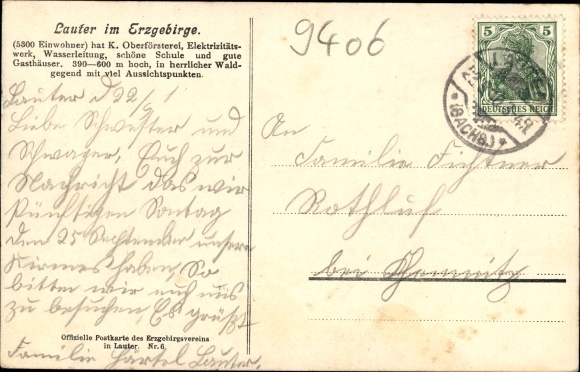 Lauter im Erzgebirge.
(5300 Einwohner) hat K. Oberförsterei, Elektrizitäts-
werk, Wasserleitung, schöne Schule und gute
Gasthäuser. 390—600 m hoch, in herrlicher Wald-
gegend mit viel Aussichtspunkten.
Lauter d 22/9 1
Liebe Schwester und
Schwager, Euch zur
Nachricht das wir
künftigen Sontag
den 25 September unsere
Kirmes haben, So
bitten wir euch uns
zu besuchen, Es grüßt
Familie Härtel Lauter.
Offizielle Postkarte des Erzgebirgsvereins
in Lauter. Nr. 6.
9406
5 5
DEUTSCHES REICH
(SACHS.)
An
Familie Fichtner
Rothluf
bei Chemnitz